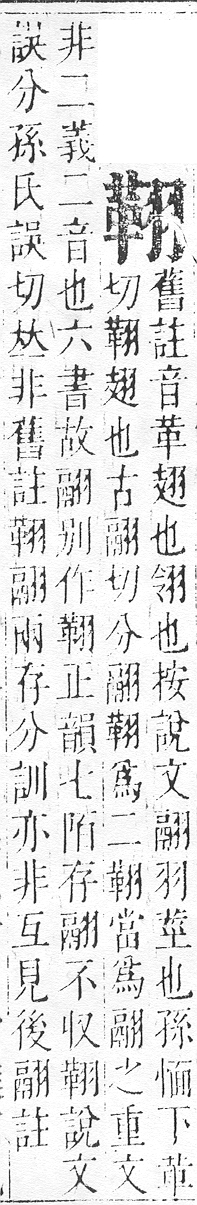 䎒
舊註音革翅也翎也按說文翮羽莖也孫愐下革
切䎒翅也古翮切分翮䎒爲二䎒當爲翮之重文
非二義二音也六書故翮別作䎒正韻七陌存翮不收䎒說文
誤分孫氏誤切𠀤非舊註䎒翮兩存分訓亦非互見後翮註